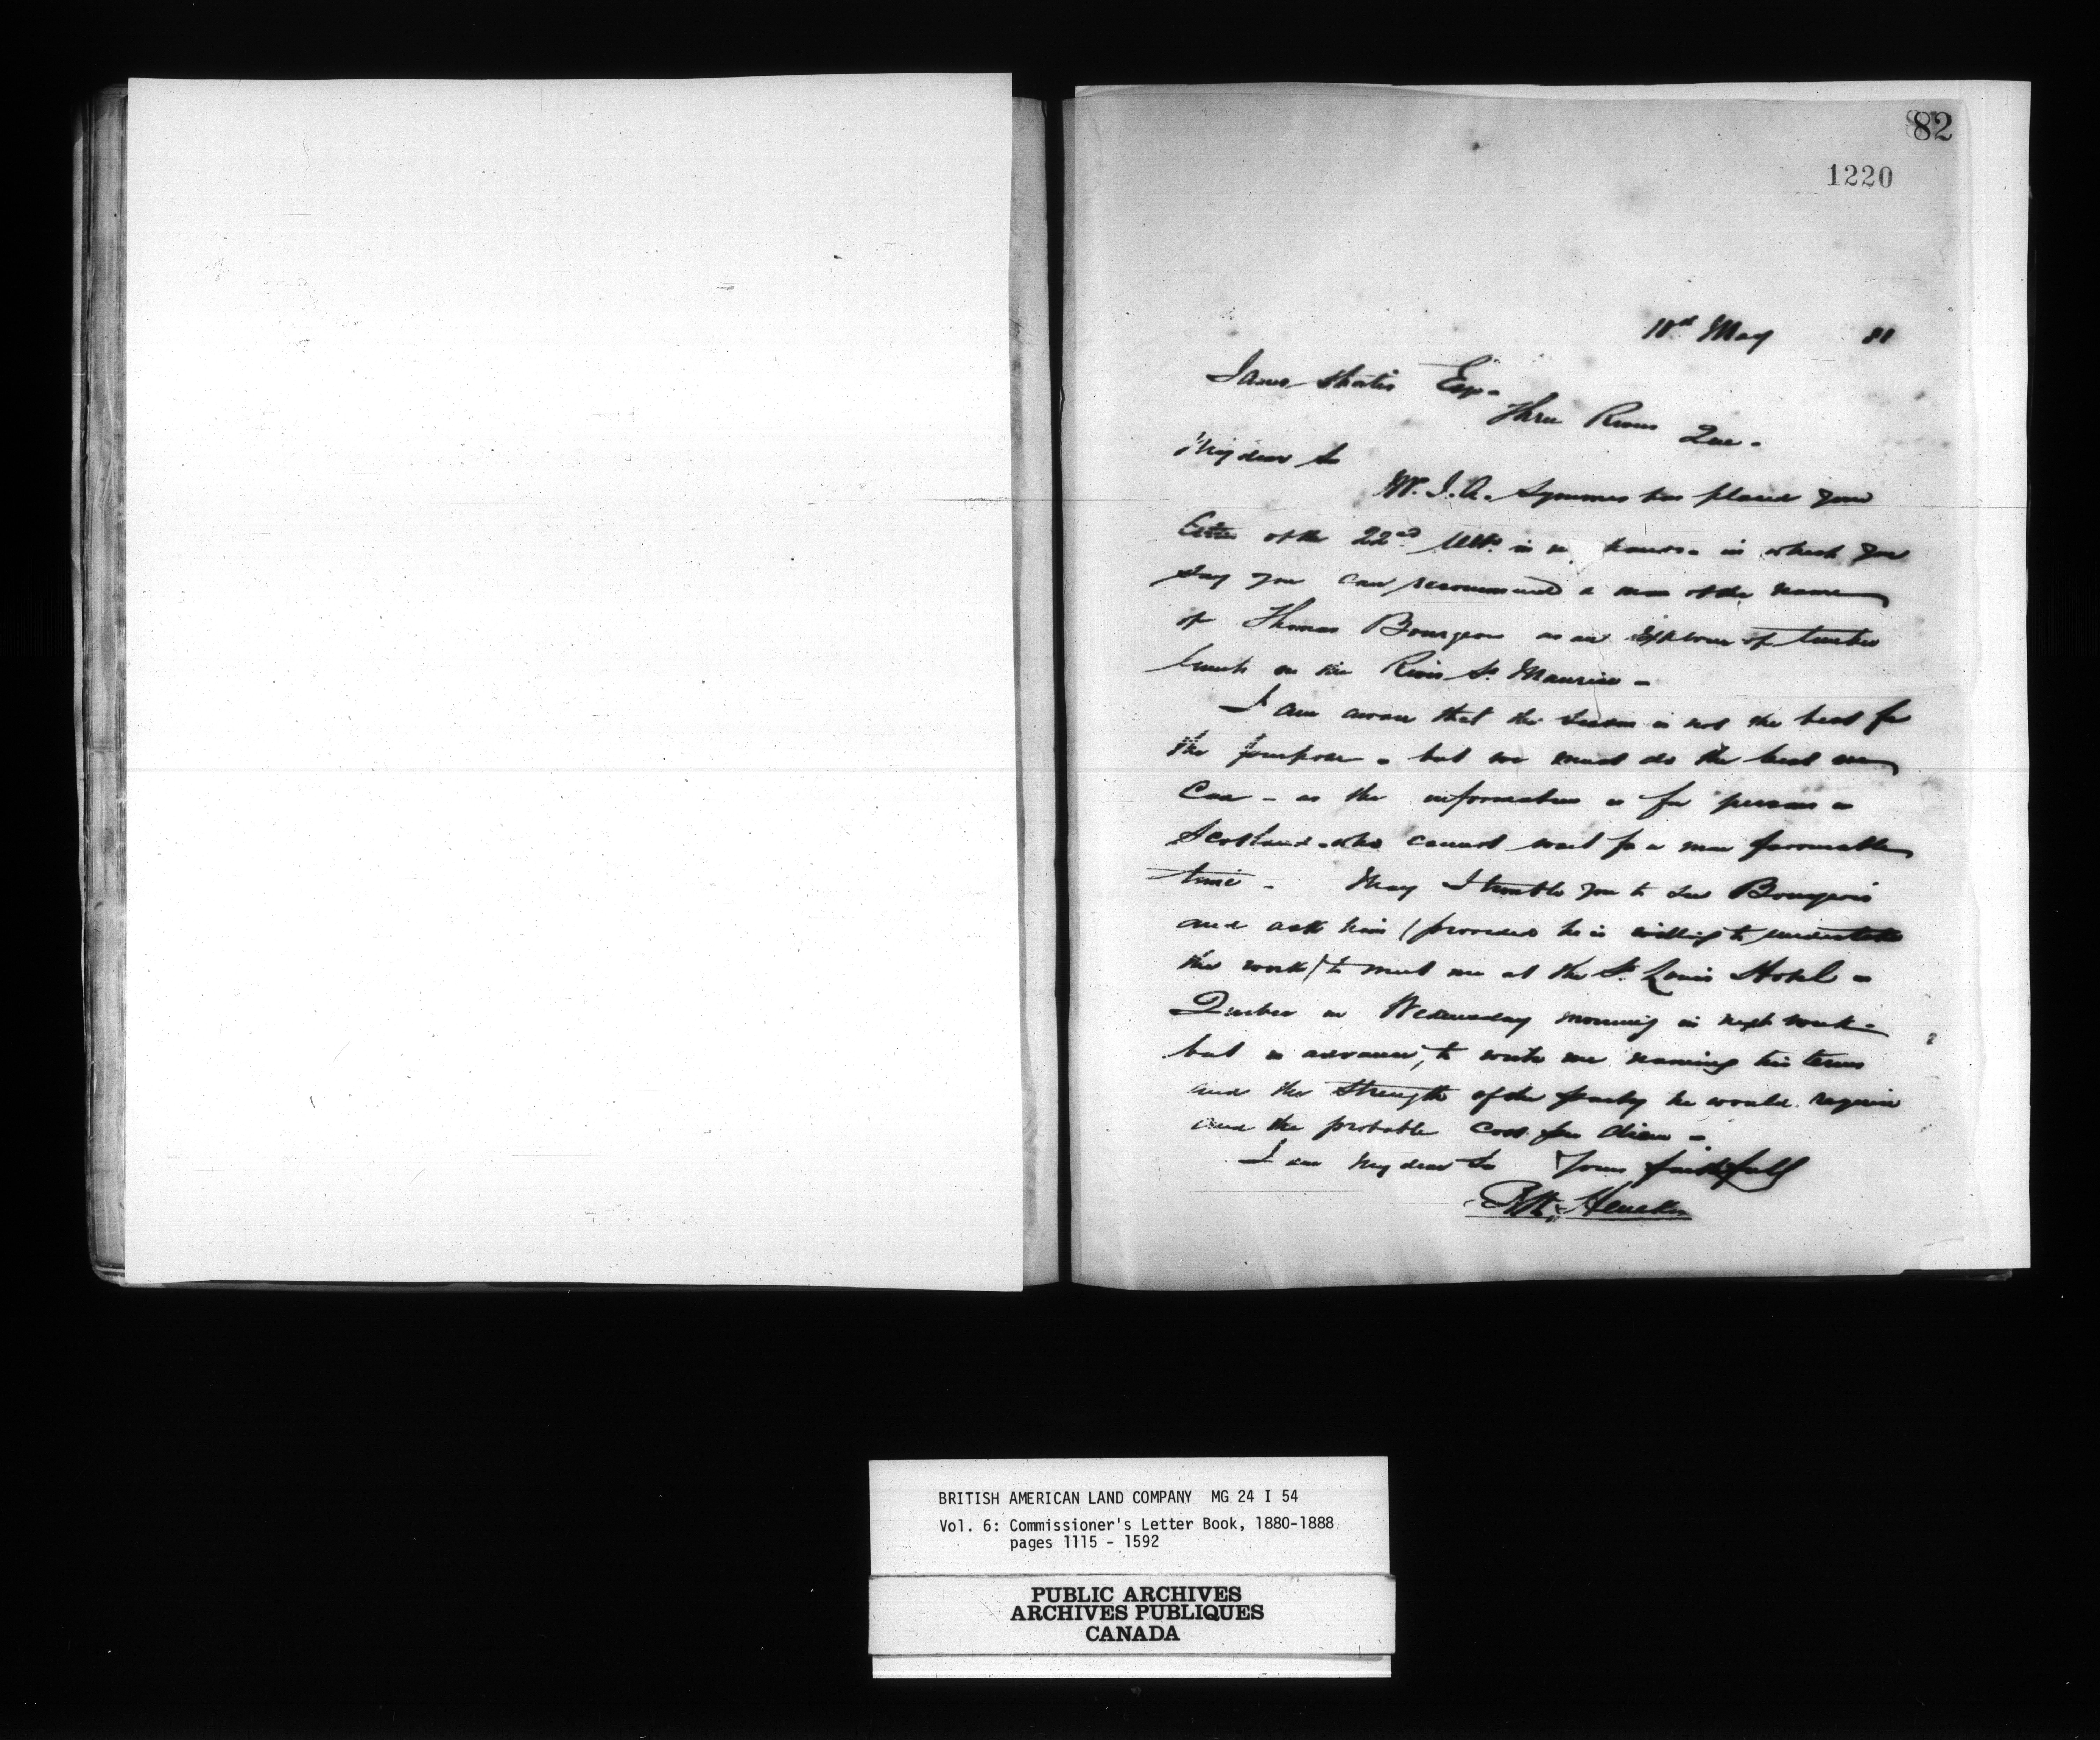 82
1220
May 81
James Esqr -
Three Rivers Que -
My dear Sir
Mr. J. A. Symmes has placed your
letter of the 22nd Ulto. in hands - in which you
say you can recommend a man of the name
of Thomas Bourgeois as an explorer of timber
limits on the River St. Maurice -
I am aware that the season is not the best for
the purpose - but we must do the best we
can - as the information is for persons in
Scotland - who cannot wait for a more favourable
time - May I trouble you to see Bourgeois
and ask him (provided he is willing to undertake
the work) to meet me at the St. Louis Hotel -
Quebec on Wednesday morning in next week -
but in advance, to write me naming his terms
and the strength of the party he would require
and the probable cost per diem -
I am my dear Sir Yours faithfully
Heneker
BRITISH AMERICAN LAND COMPANY MG 24 I 54
Vol. 6: Commissioner's Letter Book, 1880-1888
pages 1115 - 1592
PUBLIC ARCHIVES
ARCHIVES PUBLIQUES
CANADA